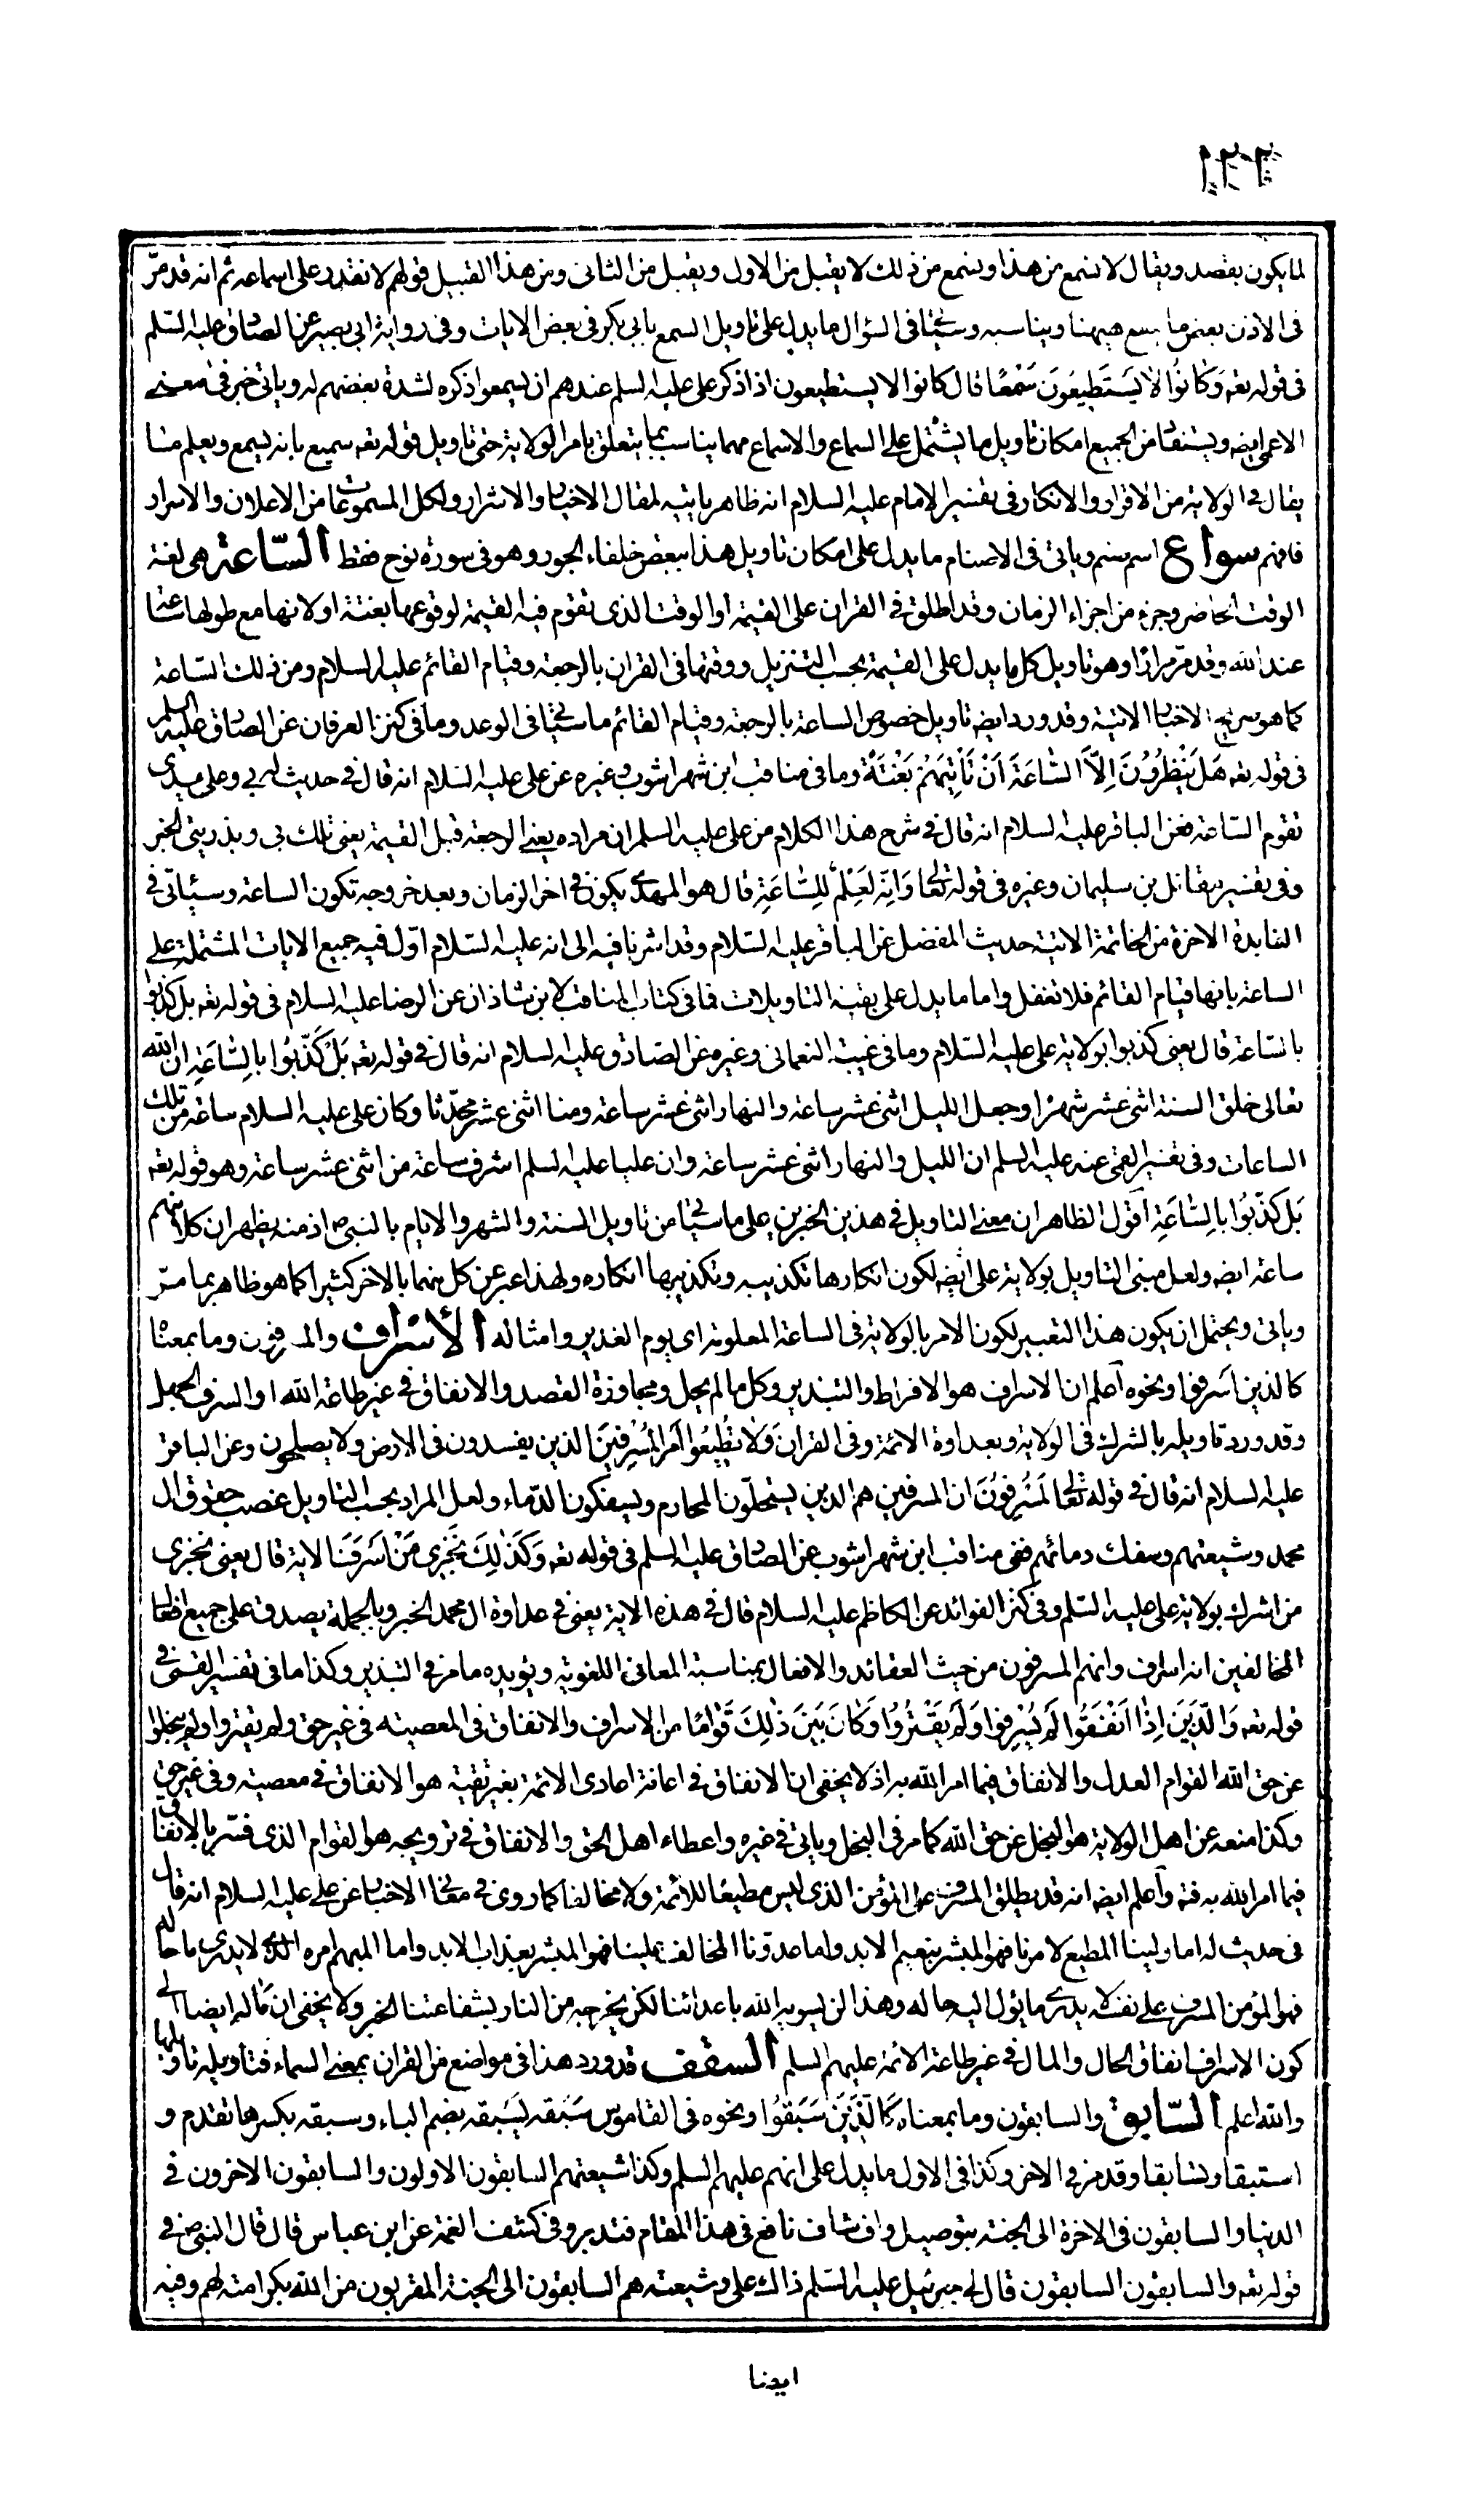 لما يكون بقصد ويقال لا تسمع من هذا وتسمع من ذلك لا يقبل من الاول ويقبل من الثانى ومن هذا القبيل قولهم لا نقدر على اسماعه ثم انه قد مرّ
فى الاذن بعض ما ههنا ويناسبه وسيأتى فى السؤال ما يدل على تاويل السمع بابى بكر فى بعض الايات وفى رواية ابى بصير عن الصادق عليه السلم
فى قوله تعه وَكَانُوا لاٰ يَسْتَطِيعُونَ سَمْعًا قال كانوا لا يستطيعون اذا ذكر على عليه السلم عندهم ان يسمعوا ذكره لشدة بغضهم له وياتى خبر فى معنى
الاعمى ايضه ويستفاد من الجميع امكان تاويل ما يشتمل على السماع والاسماع مهما يناسب بما يتعلق بامر الولاية حتى تاويل قوله تعه سميع بانه يسمع ويعلم ما
يقال فى الولاية من الاقرار والانكار فى تفسير الامام عليه السلام انه ظاهر باتيه لمقال الاخيار والاشرار ولكل المسموعات من الاعلان والاسرار
فافهم سواع اسم صنم وياتى فى الاصنام ما يدل على امكان تاويل هذا ببعض خلفاء الجور وهو فى سورة نوح فقط السّاعة هى لغة
الوقت الحاضر وجزء من اجزاء الزمان وقد اطلق فى القران على القيمة او الوقت الذى تقوم فيه القيمة لوقوعها بغتة او لانها مع طولها ساعة
عند الله وقد مرّ مرارًا وهو تاويل كل ما يدل على القيمة بحسب التنزيل ووقتها فى القران بالرجعة وقيام القائم عليه السلام ومن ذلك السّاعة
كما هو صريح الاخبار الاتية وقد ورد ايضه تاويل خصوص الساعة بالرجعة وقيام القائم ما سيأتى فى الوعد وما فى كنز العرفان عن الصادق عليه السلم
فى قوله تعه هَلْ يَنْظُرُونَ اِلاَّ السّٰاعَةَ اَنْ تَأْتِيَهُمْ بَغْتَةً وما فى مناقب ابن شهراشوب وغيره عن على عليه السلام انه قال فى حديث له بى وعلى يدى
تقوم السّاعة فعن الباقر عليه السلام انه قال فى شرح هذا الكلام من على عليه السلم ان مراده يعنى الرجعة قبل القيمة يعنى تلك بى وبذريتى الخبر
وفى تفسير مقاتل بن سليمان وغيره فى قوله تعالى وَاِنَّهُ لَعِلْمٌ لِلسّٰاعَةِ قال هو المهدى يكون فى اخر الزمان وبعد خروجه تكون الساعة وسيأتى فى
الفايدة الاخرة من الخاتمة الاتية حديث المفضل عن الباقر عليه السلام وقد اشرنا فيه الى انه عليه السّلام اوّل فيه جميع الايات المشتملة على
الساعة بانها قيام القائم فلا تغفل واما ما يدل على بقية التاويلات فما فى كتاب المناقب لابن شاذان عن الرضا عليه السلام فى قوله تعه بل كذبوا
بالسّاعة قال يعنى كذبوا بولاية على عليه السّلام وما فى غيبة النعمانى وغيره عن الصادق عليه السلام انه قال فى قوله تعه بَلْ كَذَّبُوا بِالسّٰاعَةِ ان الله
تعالى خلق السنة اثنى عشر شهرًا وجعل الليل اثنى عشر ساعة والنهار اثنى عشر ساعة ومنا اثنى عشر محدّثا وكان على عليه السلام ساعة من تلك
الساعات وفى تفسير القمى عنه عليه السلم ان الليل والنهار اثنى عشر ساعة وان عليا عليه السلم اشرف ساعة من اثنى عشر ساعة وهو قوله تعه
بَلْ كَذَّبُوا بِالسّٰاعَةِ اقول الظاهر ان معنى التاويل فى هذين الخبرين على ما سيأتى من تاويل السنة والشهر والايام بالنبى ص اذ منه يظهر ان كلا منهم
ساعة ايضه ولعل مبنى التاويل بولاية على ايضه لكون انكارها تكذيبه وتكذيبها انكاره ولهذا عبر عن كل منهما بالاخر كثيرا كما هو ظاهر بما مرّ
وياتى ويحتمل ان يكون هذا التعبير لكون الامر بالولاية فى الساعة المعلومة اى يوم الغدير وامثاله الأسراف والمسرفون وما بمعناه
كالذين اَسْرفوا ونحوه اعلم ان الاسراف هو الافراط والتبذير وكل ما لم يحل ومجاوزة القصد والانفاق فى غير طاعة الله او السرف الجهل
وقد ورد تاويله بالشرك فى الولاية وبعداوة الائمة وفى القران وَلاٰ تُطِيعُوا اَمْرَ الْمُسْرِفِينَ الذين يفسدون فى الارض ولا يصلحون وعن الباقر
عليه السلام انه قال فى قوله تعالى لَمُسْرِفُونَ ان المسرفين هم الذين يستحلّون المحارم ويسفكون الدّماء ولعل المراد بحسب التاويل غصب حقوق ال
محمد وشيعتهم وسفك دمائهم ففى مناقب ابن شهراشوب عن الصادق عليه السلم فى قوله تعه وَكَذٰلِكَ نَجْزِى مَنْ اَسْرَفَ الاية قال يعنى نجزى
من اشرك بولاية على عليه السّلم وفى كنز الفوائد عن الكاظم عليه السلام قال فى هذه الاية يعنى فى عداوة ال محمد الخبر وبالجملة يصدق على جميع افعال
المخالفين انه اسراف وانهم المسرفون من حيث العقائد والافعال بمناسبة المعانى اللغوية ويؤيده ما مر فى التبذير وكذا ما فى تفسير القمى فى
قوله تعه وَالَّذِينَ اِذٰا اَنْفَقُوا لَمْ يُسْرِفُوا وَلَمْ يَقْتُرُوا وَكٰانَ بَيْنَ ذٰلِكَ قَوٰامًا من الاسراف والانفاق فى المعصية فى غير حق ولم يقتروا ولم يبخلوا
عن حق الله القوام العدل والانفاق فيما امر الله به اذ لا يخفى ان الانفاق فى اعانة اعادى الائمة بغير تقية هو الانفاق فى معصية وفى غير حق
وكذا منعه عن اهل الولاية هو البخل عن حق الله كما مر فى البخل وياتى فى غيره واعطاء اهل الحق والانفاق فى ترويجه هو القوام الذى فسّر بالانفاق
فيما امر الله به فته واعلم ايضه انه قد يطلق المسرف على المؤمن الذى ليس مطيعًا للائمة ولا مخالفا كما روى فى معانى الاخبار عن على عليه السلام انه قال
فى حديث له اما ولينا المطيع لامرنا فهو المبشر بنعيم الابد واما عدونا المخالف علينا فهو المبشر بعذاب الابد واما المبهم امره الذى لا يدرى ما حاله
فهو المؤمن المسرف على نفسه لا يدرى ما يؤل اليه حاله وهذا لن يسويه الله باعدائنا لكن يخرجه من النار بشفاعتنا الخبر ولا يخفى ان ماله ايضا الى
كون الاسراف انفاق الحال والمال فى غير طاعة الائمة عليهم السلم السقف قد ورد هذا فى مواضع من القران بمعنى السماء فتاويله تاويلها
والله اعلم السّابق والسابقون وما بمعناه كَالَّذِينَ سَبَقُوا ونحوه فى القاموس سَبَقه يسبقه بضم الباء وسبقه بكسرها تقدم و
استبقا وتسابقا وقد مر فى الاخر وكذا فى الاول ما يدل على انهم عليهم السلم وكذا شيعتهم السابقون الاولون والسابقون الاخرون فى
الدنيا والسابقون فى الاخرة الى الجنة بتوصيل واف شاف نافع فى هذا المقام فتدبر وفى كشف الغمة عن ابن عباس قال قال النبى ص فى
قوله تعه والسابقون السابقون قال لى جبرئيل عليه السّلم ذاك على وشيعته هم السابقون الى الجنة المقربون من الله بكرامته لهم وفيه
ايضا